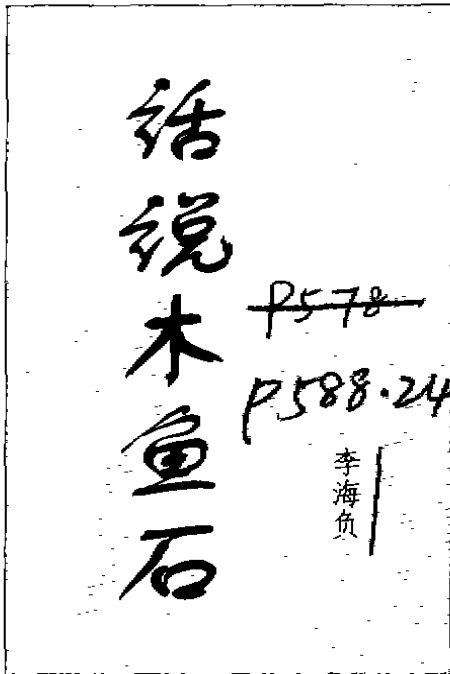 话说木鱼石
P578
P588·24
李海负